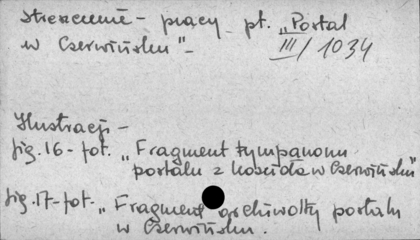 Streszczenie - pracy pt. „Portal
w Czerwińsku" -
III/1034
Ilustracje -
fig. 16 - fot. „Fragment tympanonu
portalu z kościoła w Czerwińsku"
fig. 17 - fot. „Fragment archiwolty portalu
w Czerwińsku.